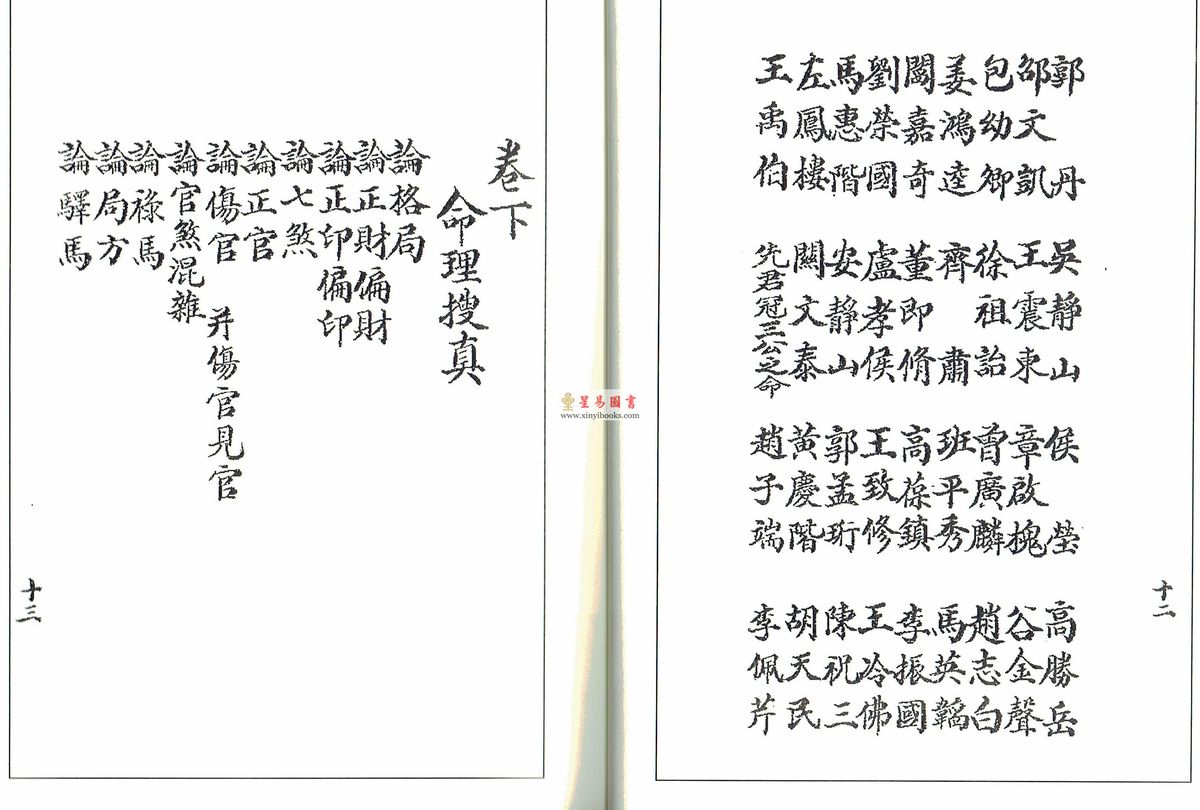 郭　丹　吳靜山　侯　瑩　高勝岳
邵文凱　王震東　章啟槐　谷金聲
包幼卿　徐祖詒　曾廣麟　趙志白
姜鴻逵　齊　肅　班平秀　馬英韜
闞嘉奇　董即脩　高葆鎮　李振國
劉榮國　盧孝侯　王致修　王冷佛
馬惠階　安靜山　郭孟珩　陳祝三
左鳳樓　關文泰　黃慶階　胡天民
王禹伯　先君冠三公之命　趙子端　李佩芹
十二
星易圖書
www.xinyibooks.com
卷下
命理搜真
論格局
論正財偏財
論正印偏印
論七煞
論正官
論傷官　并傷官見官
論官煞混雜
論祿馬
論局方
論驛馬
十三